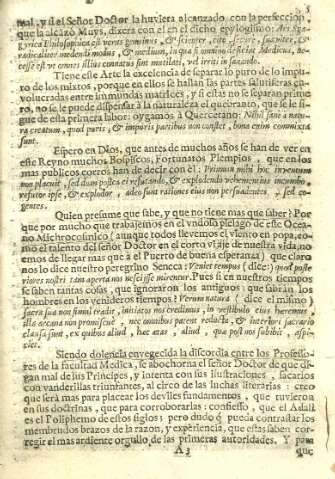 5
mal, y si el Señor Doctor la huviera alcanzado con la perfeccion,
que la alcazò Muys, dixera con el en el dicho epylogismo: Ars Spa-
gyrica Philosophica est verus genuinus, & scienter, citò, secure, suaviter,
radicaliter medendi modus, & medium, in qua si omnino desistat Medicus, ne-
cesse est ve omnes illius conatus sint mutilati, vel irriti in sacundo.
Tiene este Arte la excelencia de separar lo puro de lo impu-
ro de los mixtos, porque en ellos se hallan las partes salutiferas en-
volucradas entre inmundas matrices, y si estas no se separan prime-
ro, no se le puede dispensar à la naturaleza el quebranto, que se le si-
gue de esta primera labor: oygamos à Quercetano: Nihil sanè à natu-
ra creatum, quod puris, & impuris partibus non constet, bona enim commixta
sunt.
Espero en Dios, que antes de muchos años se han de ver en
este Reyno muchos Boipiscos, Fortunatos Plempios, que en los
mas publicos corros han de decir con èl: Primum mihi hoc inventum
non placuit, sed dum postea et refutando, & explodendo vehementius incumbo,
refutor ipse, & explodor, adeo sunt rationes eius non persuadentes, sed co-
gentes.
Quien presume que sabe, y que no tiene mas que saber? Por
que por mucho que trabajemos en el vndoso pielago de este Ocea-
no Michrocosmico (aunque todos llevemos el viento en popa, co-
mo el talento del señor Doctor en el corto viaje de nuestra vida, no
emos de llegar mas que à el Puerto de buena esperanza) que claro
nos lo dice nuestro peregrino Seneca: Veniet tempus (dice) quod poste-
riores nostri tam aperta nos nescisse mirentur. Pues si en nuestros tiempos
se saben tantas cosas, que ignoraron los antiguos: que sabràn los
hombres en los venideros tiempos? Rerum natura (dice el mismo)
sacra sua non simul tradit, initiatos nos credimus, in vestibulo eius heremus,
illa arcana non promiscuè, nec omnibus patent redacta, & interiori sacrario
clausa sunt, ex quibus aliud, hæc ætas, aliud, quæ post nos subibit, aspi-
ciet.
Siendo dolencia envegecida la discordia entre los Professo-
res de la facultad Medica, se abochorna el señor Doctor de que di-
gan mal de los Principes, y intenta con sus ilustraciones, sacarlos
con vanderillas triunfantes, al circo de las luchas literarias: creo
que serà mas para placear los deviles fundamentos, que tuvieron
en sus doctrinas, que para corroborarlas: confiesso, que el Adalid
es el Poliphemo de estos siglos; pero dudo q̃ pueda contrastar los
membrudos brazos de la razon, y experiencia, que estas saben cor-
regir el mas ardiente orgullo de las primeras autoridades. Y para
A3 que